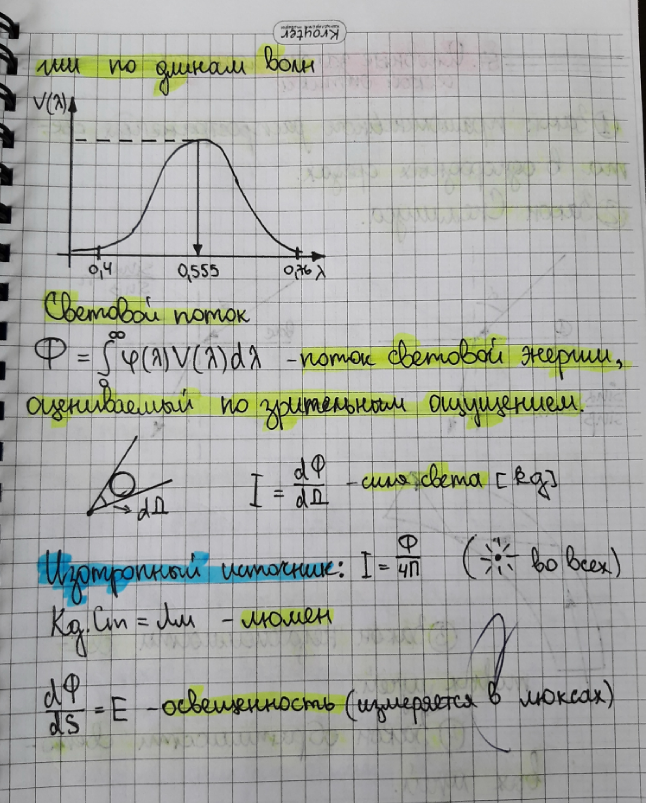 Kroyter
ии по длинам волн
V(λ)
0,4 0,555 0,76 λ
Световой поток
Φ = ∫₀^∞ φ(λ)V(λ)dλ - поток световой энергии,
оцениваемый по зрительным ощущением.
dΩ I = dΦ/dΩ - сила света [кд]
Изотропный источник: I = Φ/4π ( во всех)
Кд·Ст = Лм - люмен
dΦ/dS = E - освещенность (измеряется в люксах)